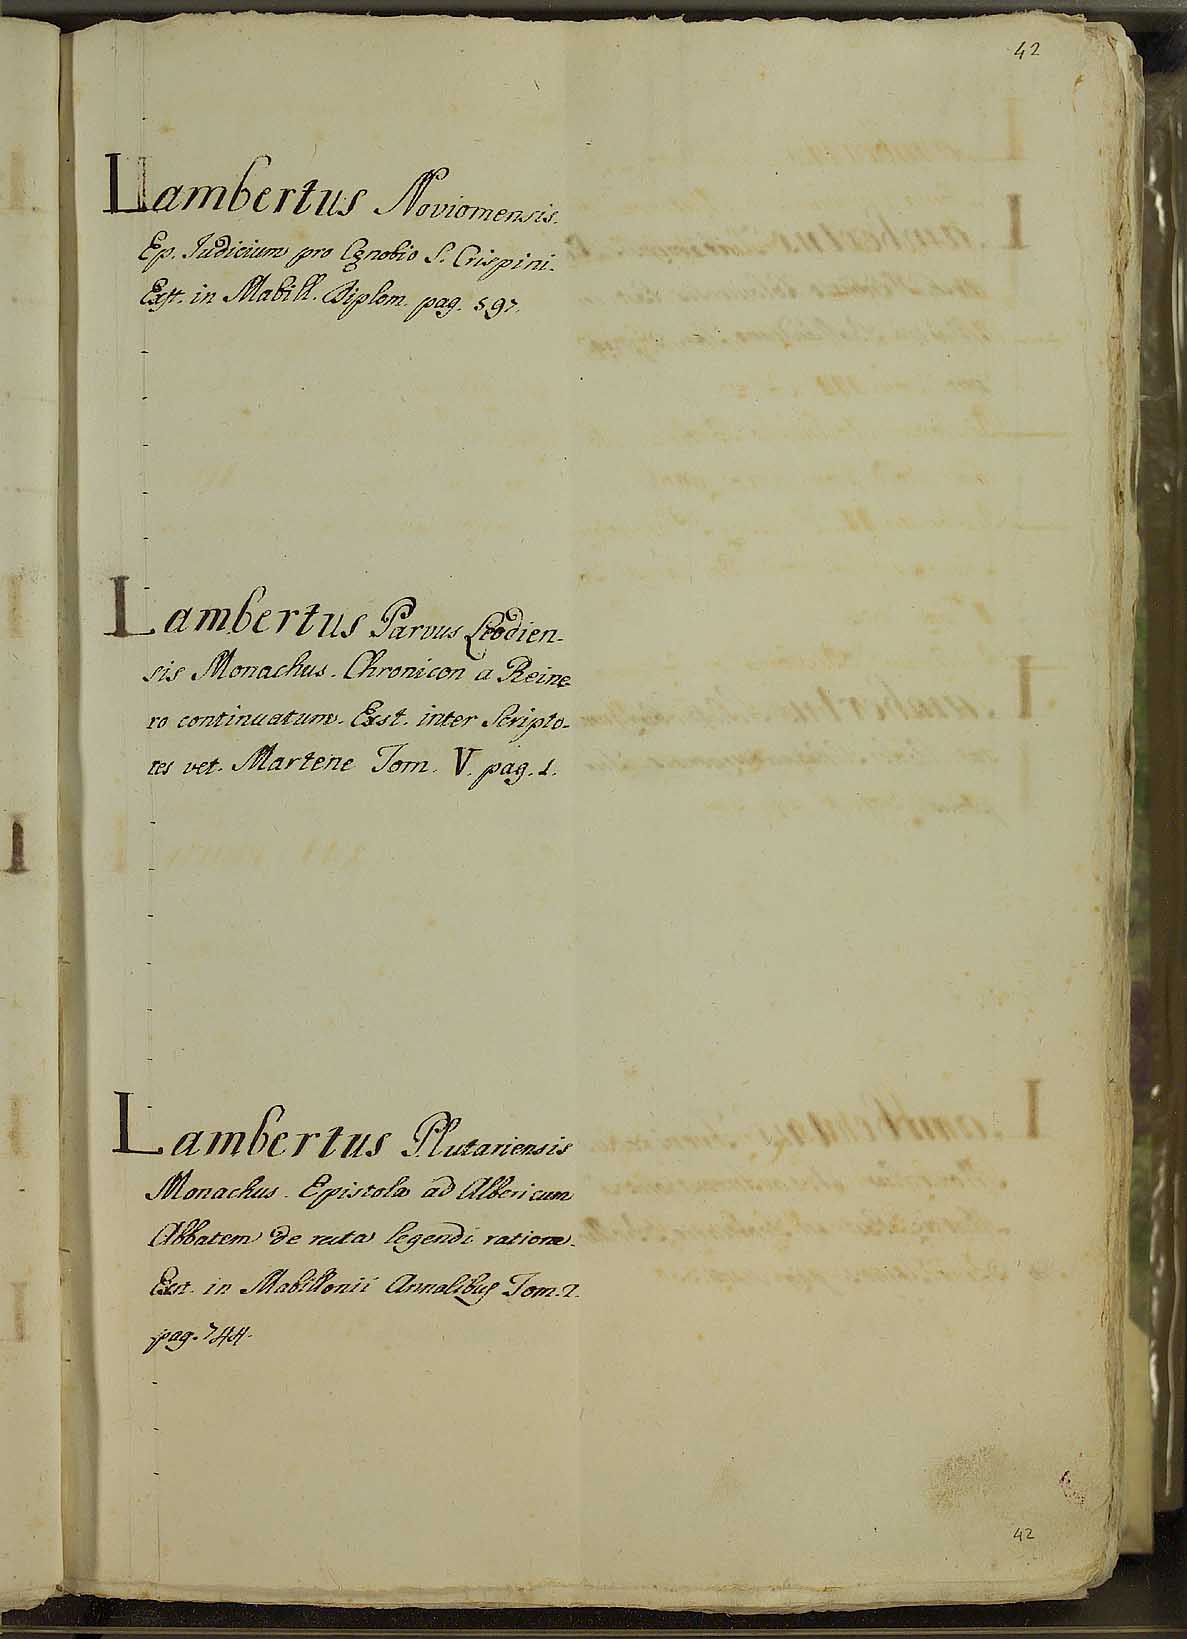 42
Lambertus Noviomensis.
Ep. Judicium pro Cœnobio S. Crispini.
Exst. in Mabill. Diplom. pag. 597.
Lambertus Parvus Leodien-
sis Monachus. Chronicon a Reine-
ro continuatum. Exst. inter Scripto-
res vet. Martene Tom. V. pag. 1.
Lambertus Plutariensis
Monachus. Epistola ad Albericum
Abbatem de recta legendi ratione.
Exst. in Mabillonii Annalibus Tom. 2.
pag. 744.
42